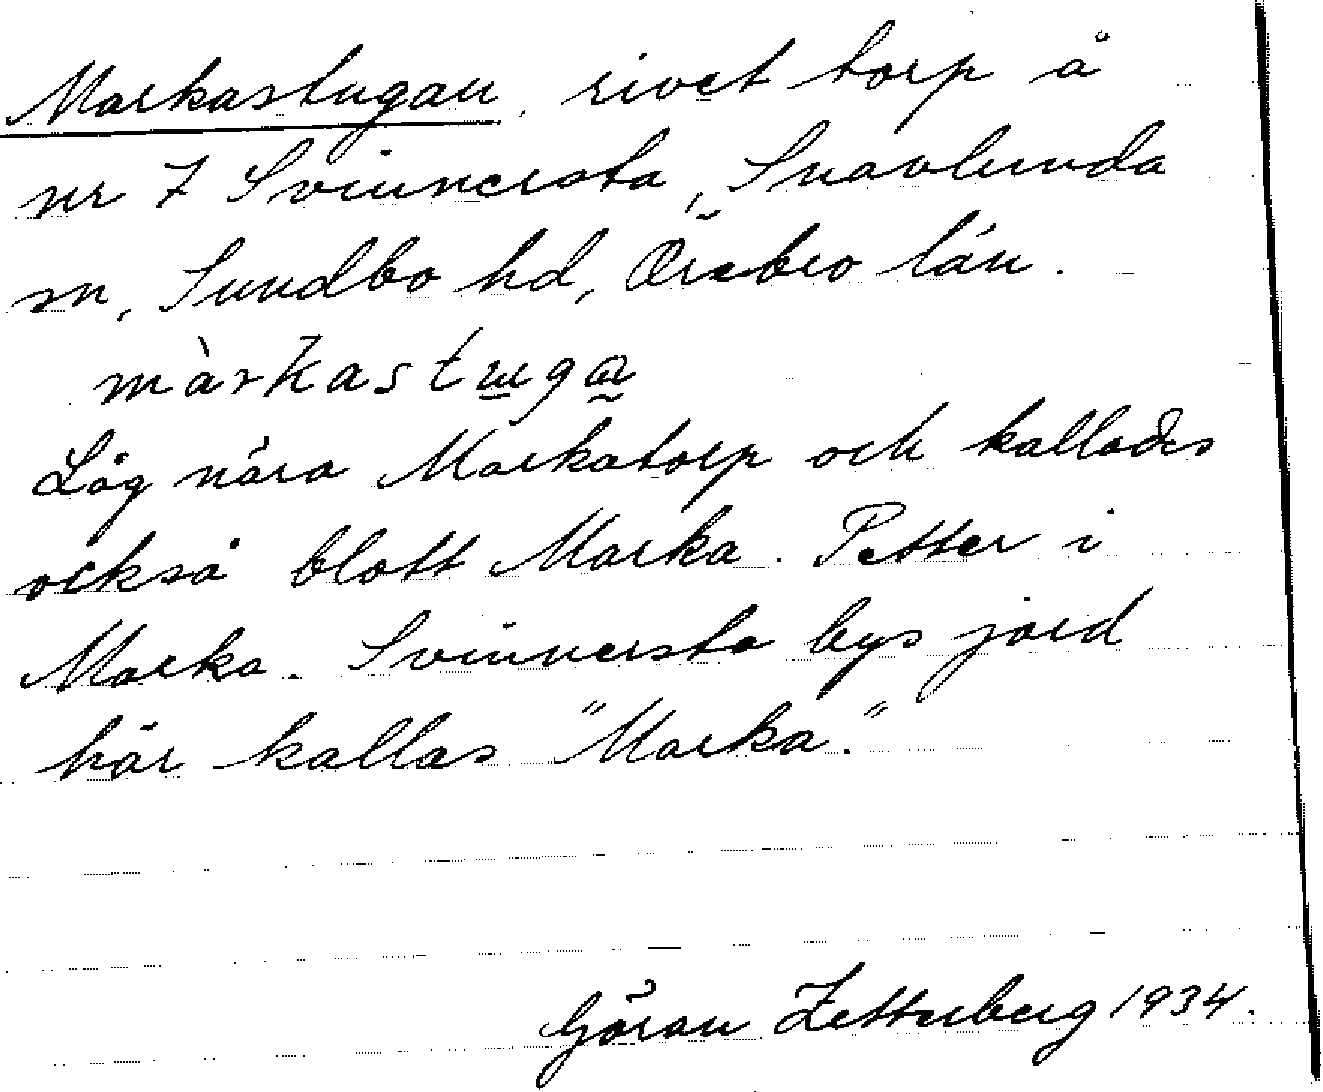 Markastugan, rivet torp å
nr 7 Svinnersta, Snavlunda
sn, Sundbo hd, Örebro län.
màrkastuga
Låg nära Markatorp och kallades
också blott Marka. Petter i
Marka. Svinnersta bys jord
här kallas "Marka."
Göran Zetterberg 1934.